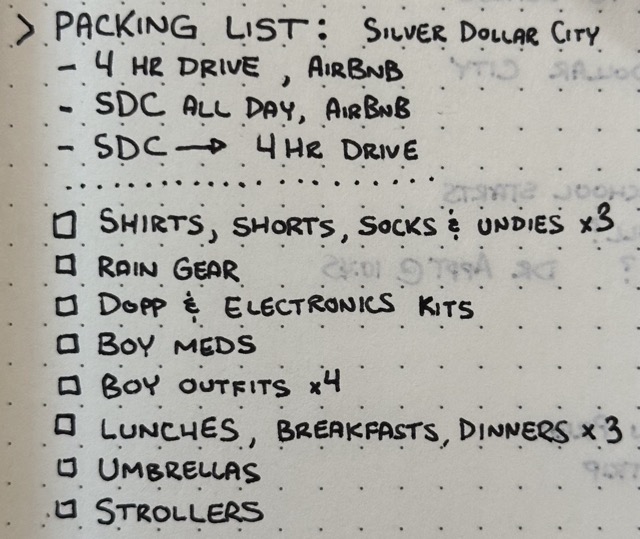 > PACKING LIST: SILVER DOLLAR CITY
- 4 HR DRIVE, AIRBNB
- SDC ALL DAY, AIRBNB
- SDC → 4 HR DRIVE
☐ SHIRTS, SHORTS, SOCKS & UNDIES x3
☐ RAIN GEAR
☐ DOPP & ELECTRONICS KITS
☐ BOY MEDS
☐ BOY OUTFITS x4
☐ LUNCHES, BREAKFASTS, DINNERS x3
☐ UMBRELLAS
☐ STROLLERS